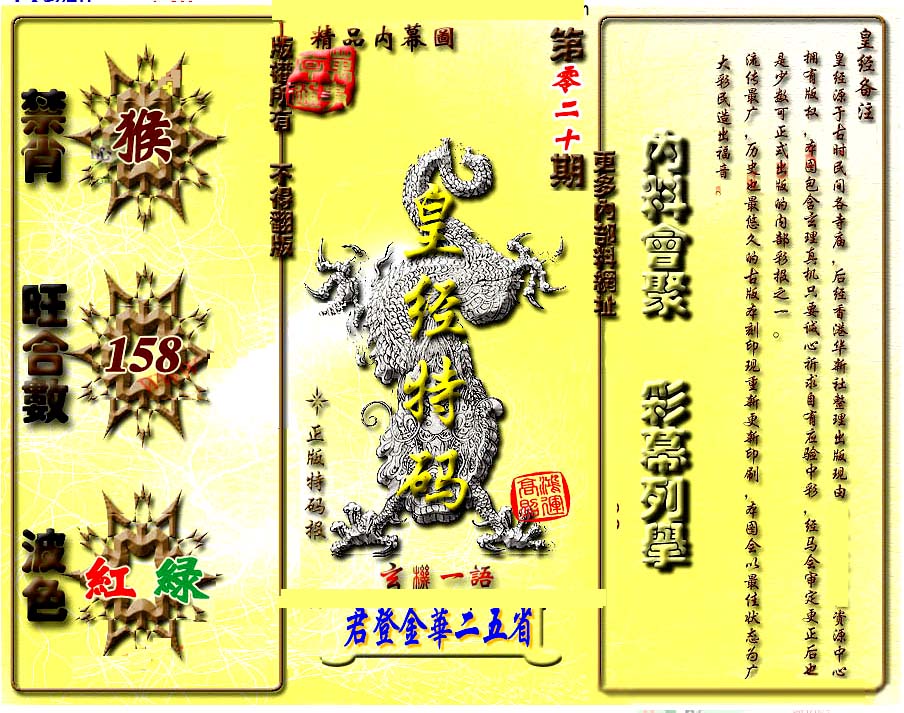 皇经备注
皇经源于古时民间各寺庙,后经香港华新社整理出版现由
资源中心
拥有版权,本图包含玄理真机只要诚心祈求自有应验中彩,经马会审定更正后也
是少数可正式出版的内部彩报之一。
流传最广,历史也最悠久的古版本刻印现重新更新印刷,本图会以最佳状态为广
大彩民造出福音
内料會聚
彩幕列舉
更多內部料網址
第零二十期
精品内幕圖
版權所有 不得翻版
皇经特码
正版特码报
鴻運高照
玄機一語
君登金華二五省
禁肖
猴
旺合數
158
波色
紅 綠